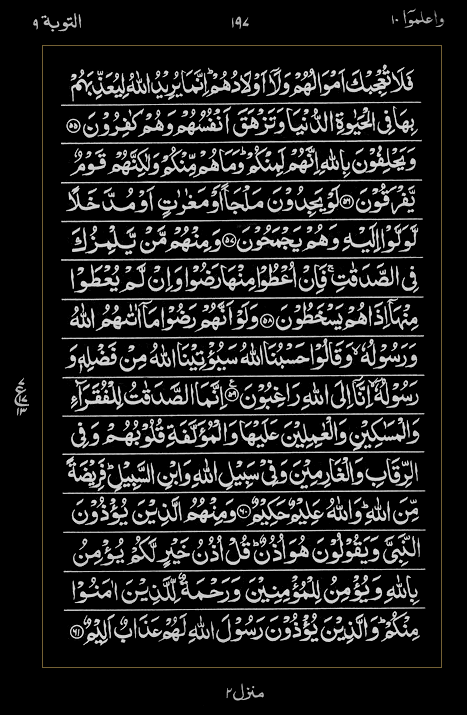 واعلموا ۱۰ ۱۹۷ التوبة ۹
فَلَا تُعْجِبْكَ اَمْوَالُهُمْ وَلَاۤ اَوْلَادُهُمْ ؕ اِنَّمَا يُرِيْدُ اللّٰهُ لِيُعَذِّبَهُمْ
بِهَا فِى الْحَيٰوةِ الدُّنْيَا وَتَزْهَقَ اَنْفُسُهُمْ وَهُمْ كٰفِرُوْنَ ﴿۵۵﴾
وَيَحْلِفُوْنَ بِاللّٰهِ اِنَّهُمْ لَمِنْكُمْ ؕ وَمَا هُمْ مِّنْكُمْ وَلٰكِنَّهُمْ قَوْمٌ
يَّفْرَقُوْنَ ﴿۵۶﴾ لَوْ يَجِدُوْنَ مَلْجَاً اَوْ مَغٰرٰتٍ اَوْ مُدَّخَلًا
لَّوَلَّوْا اِلَيْهِ وَهُمْ يَجْمَحُوْنَ ﴿۵۷﴾ وَمِنْهُمْ مَّنْ يَّلْمِزُكَ
فِى الصَّدَقٰتِ ۚ فَاِنْ اُعْطُوْا مِنْهَا رَضُوْا وَاِنْ لَّمْ يُعْطَوْا
مِنْهَاۤ اِذَا هُمْ يَسْخَطُوْنَ ﴿۵۸﴾ وَلَوْ اَنَّهُمْ رَضُوْا مَاۤ اٰتٰىهُمُ اللّٰهُ
وَرَسُوْلُهٗ ۙ وَقَالُوْا حَسْبُنَا اللّٰهُ سَيُؤْتِيْنَا اللّٰهُ مِنْ فَضْلِهٖ وَ
رَسُوْلُهٗۤ ۙ اِنَّاۤ اِلَى اللّٰهِ رَاغِبُوْنَ ﴿۵۹﴾ اِنَّمَا الصَّدَقٰتُ لِلْفُقَرَآءِ
وَالْمَسٰكِيْنِ وَالْعٰمِلِيْنَ عَلَيْهَا وَالْمُؤَلَّفَةِ قُلُوْبُهُمْ وَفِى
الرِّقَابِ وَالْغَارِمِيْنَ وَفِىْ سَبِيْلِ اللّٰهِ وَابْنِ السَّبِيْلِ ؕ فَرِيْضَةً
مِّنَ اللّٰهِ ؕ وَاللّٰهُ عَلِيْمٌ حَكِيْمٌ ﴿۶۰﴾ وَمِنْهُمُ الَّذِيْنَ يُؤْذُوْنَ
النَّبِىَّ وَيَقُوْلُوْنَ هُوَ اُذُنٌ ؕ قُلْ اُذُنُ خَيْرٍ لَّكُمْ يُؤْمِنُ
بِاللّٰهِ وَيُؤْمِنُ لِلْمُؤْمِنِيْنَ وَرَحْمَةٌ لِّلَّذِيْنَ اٰمَنُوْا
مِنْكُمْ ؕ وَالَّذِيْنَ يُؤْذُوْنَ رَسُوْلَ اللّٰهِ لَهُمْ عَذَابٌ اَلِيْمٌ ﴿۶۱﴾
منزل ۲